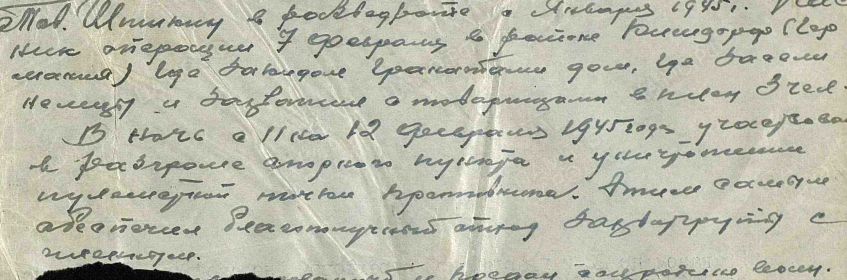 Тов. Шишкин в разведроте с Января 1945 г.
ник операции 7 февраля в районе (Гер
мания) где закидал гранатами дом, где засели
немцы и захватил с товарищами в плен 3 чел.
В ночь с 11 на 12 февраля 1945 года участвовал
в разгроме опорного пункта и уничтожении
пулеметной точки противника. Этим самым
обеспечил благополучный отход захватгруппы с
пленным.
и предан родине воин.